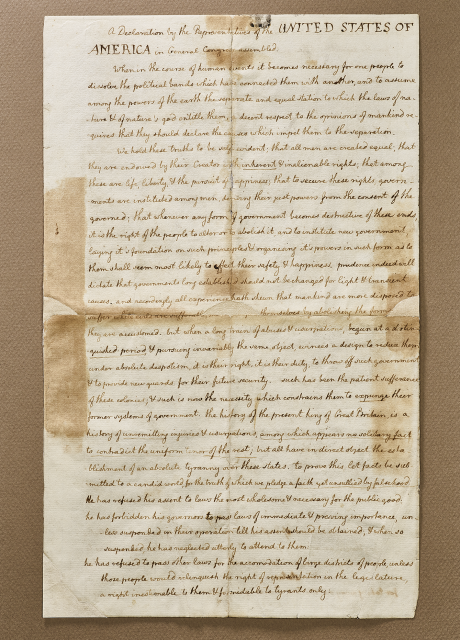 A Declaration by the Representatives of the UNITED STATES OF
AMERICA in General Congress assembled.
When in the course of human events it becomes necessary for one people to
dissolve the political bands which have connected them with another, and to assume
among the powers of the earth the separate and equal station to which the laws of na-
ture & of nature's god entitle them, a decent respect to the opinions of mankind re-
quires that they should declare the causes which impel them to the separation.
We hold these truths to be self evident; that all men are created equal; that
they are endowed by their Creator with inherent & inalienable rights; that among
these are life, liberty, & the pursuit of happiness; that to secure these rights, govern-
ments are instituted among men, deriving their just powers from the consent of the
governed; that whenever any form of government becomes destructive of these ends,
it is the right of the people to alter or to abolish it, and to institute new government,
laying it's foundation on such principles & organizing it's powers in such form as to
them shall seem most likely to effect their safety & happiness. prudence indeed will
dictate that governments long established should not be changed for light & transient
causes. and accordingly all experience hath shewn that mankind are more disposed to
suffer while evils are themselves by abolishing the forms
they are accustomed. but when a long train of abuses & usurpations, begun at a distin-
guished period & pursuing invariably the same object evinces a design to reduce them
under absolute despotism, it is their right, it is their duty, to throw off such government
& to provide new guards for their future security. such has been the patient sufferance
of these colonies; & such is now the necessity which constrains them to expunge their
former systems of government. the history of the present king of Great Britain is a
history of unremitting injuries & usurpations, among which appears no solitary fact
to contradict the uniform tenor of the rest; but all have in direct object the esta-
blishment of an absolute tyranny over these states. to prove this let facts be sub-
mitted to a candid world for the truth of which we pledge a faith yet unsullied by falsehood
He has refused his assent to laws the most wholesome & necessary for the public good
he has forbidden his governors to pass laws of immediate & pressing importance, un-
less suspended in their operation till his assent should be obtained; & when so
suspended, he has neglected utterly to attend to them.
he has refused to pass other laws for the accomodation of large districts of people, unless
those people would relinquish the right of representation in the legislature,
a right inestimable to them & formidable to tyrants only.